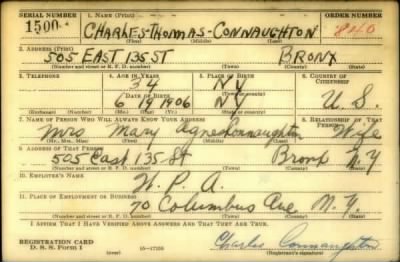 SERIAL NUMBER 1. NAME (Print) ORDER NUMBER
1500 CHARLES-THOMAS-CONNAUGHTON 840
(First) (Middle) (Last)
2. ADDRESS (Print)
505 EAST 135 ST BRONX
(Number and street or R. F. D. number) (Town) (County) (State)
3. TELEPHONE 4. AGE IN YEARS 5. PLACE OF BIRTH 6. COUNTRY OF CITIZENSHIP
34 NY
DATE OF BIRTH (Town or county)
6 19 1906 NY U.S.
(Exchange) (Number) (Mo.) (Day) (Yr.) (State or country)
7. NAME OF PERSON WHO WILL ALWAYS KNOW YOUR ADDRESS 8. RELATIONSHIP OF THAT PERSON
Mrs Mary Agnes Connaughton Wife
(Mr., Mrs., Miss) (First) (Middle) (Last)
9. ADDRESS OF THAT PERSON
505 East 135 St Bronx N.Y
(Number and street or R. F. D. number) (Town) (County) (State)
10. EMPLOYER'S NAME
W. P. A.
11. PLACE OF EMPLOYMENT OR BUSINESS
70 Columbus Ave N.Y.
(Number and street or R. F. D. number) (Town) (County) (State)
I AFFIRM THAT I HAVE VERIFIED ABOVE ANSWERS AND THAT THEY ARE TRUE.
REGISTRATION CARD
D. S. S. Form 1 16-17105 Charles Connaughton
(Registrant's signature)